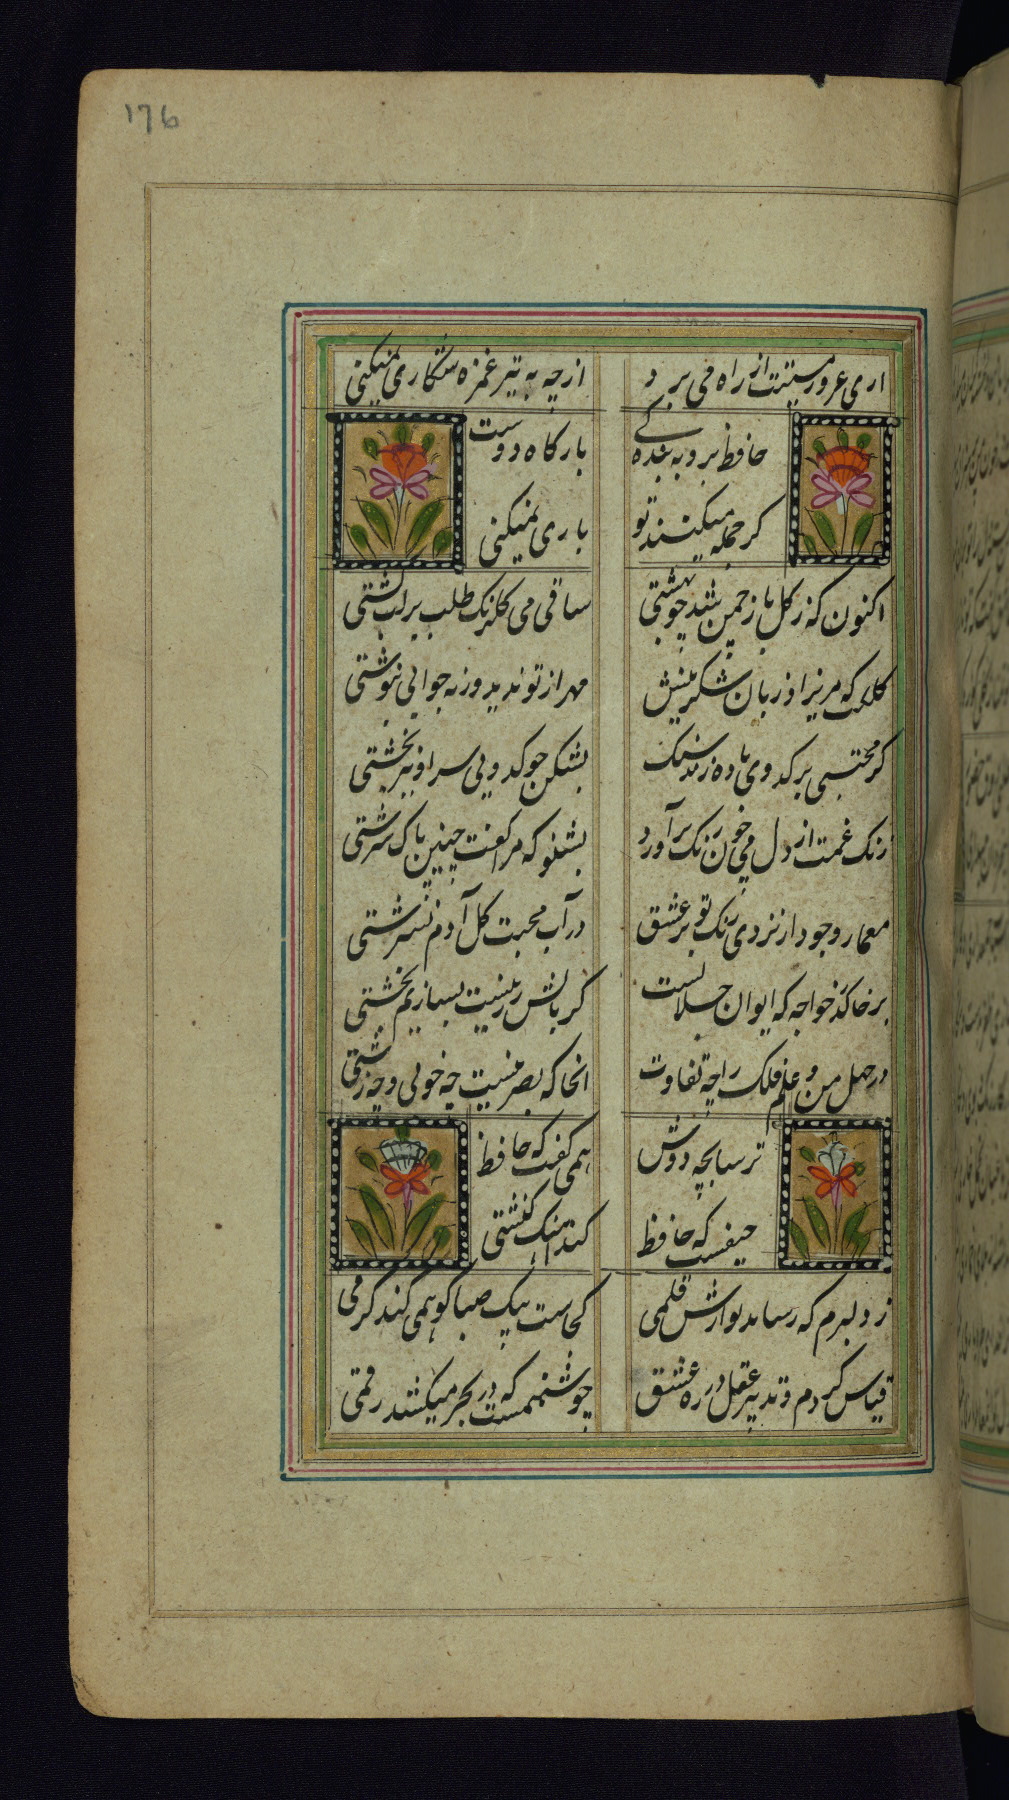 176
اری غرور مستیت از راه می برد
از چه به تیر غمزه شکاری نمیکنی
حافظ برو به بنده کے
بارکاه دوست
کر جمله میکنند تو
باری نمیکنی
اکنون که ز کل باز چمن شد چو بهشتی
ساقی می کلرنک طلب بر لب کشتی
کلکت که مریزاد زبان شکرینش
مهر از تو ندید و نه جوابی بنوشتی
کر محتسبی بر کدوی باده زند سنک
بشکن چو کدویی سر او نیز بخشتی
زنک غمت از دل می خون رنک برآورد
بشنو که مرا کفت چنین پاک سرشتی
معمار وجود ار نزدی رنک تو بر عشق
در آب محبت کل آدم نسرشتی
بر خاکذ خواجه که ایوان جلالست
کر بالش زر نیست بسازیم بخشتی
در جهل من و علم فلک را چه تفاوت
انجا که بصر نیست چه خوبی و چه زشتی
ترسابچه دوش
همی کفت که حافظ
حیفست که حافظ
کند اهنک کنشتی
ز دلبرم که رساند نوازش قلمی
کجاست پیک صبا کو همی کند کرمی
قیاس کردم و تدبیر عقل در ره عشق
چو شبنمست که در بحر میکشد رقمی